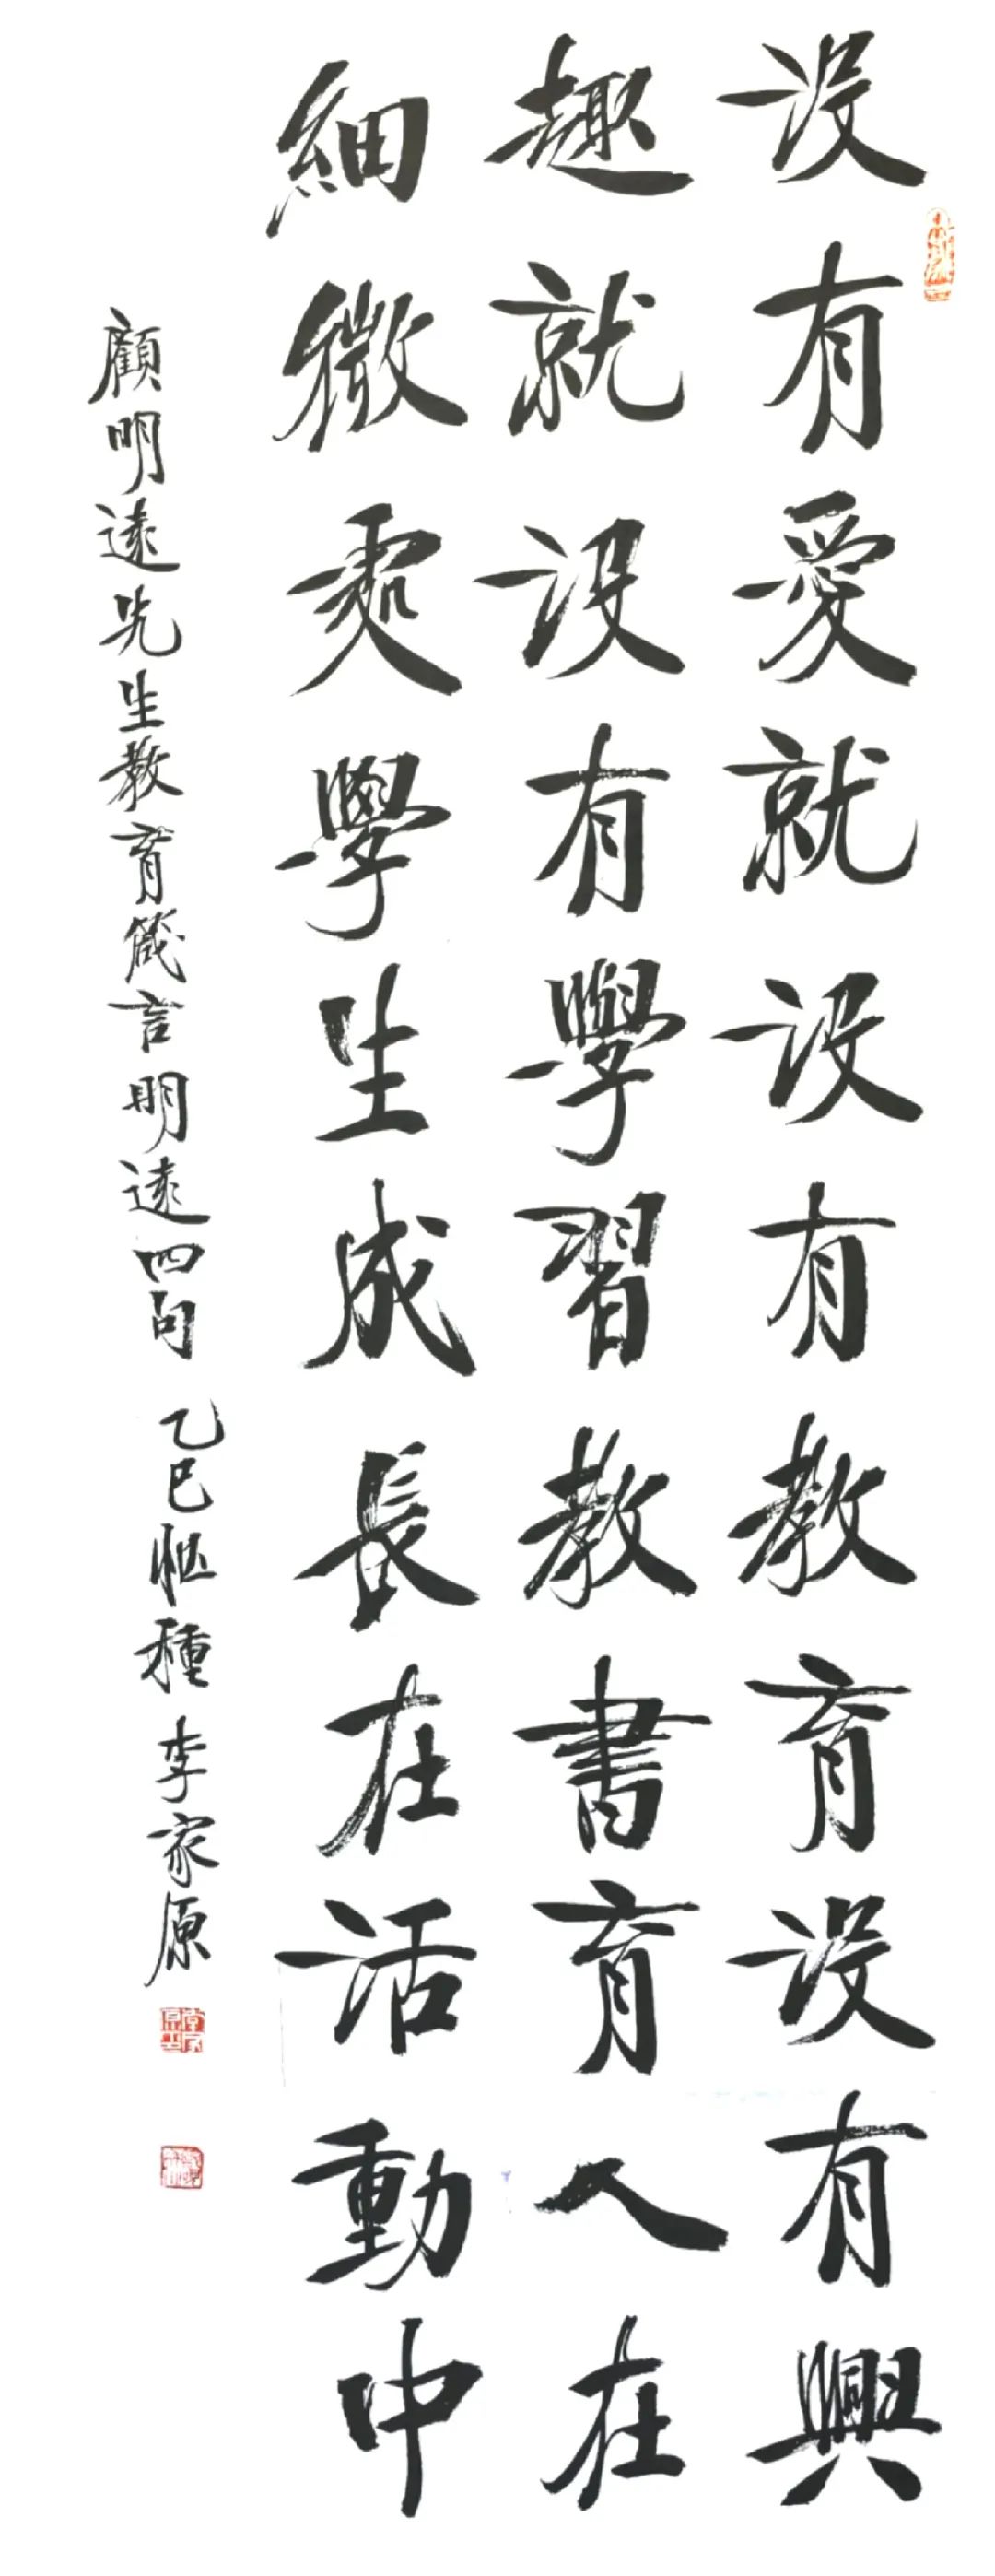 没有愛就没有教育没有興
趣就没有學習教書育人在
細微處學生成長在活動中
顧明遠先生教育箴言明遠四句 乙巳忙種 李家原